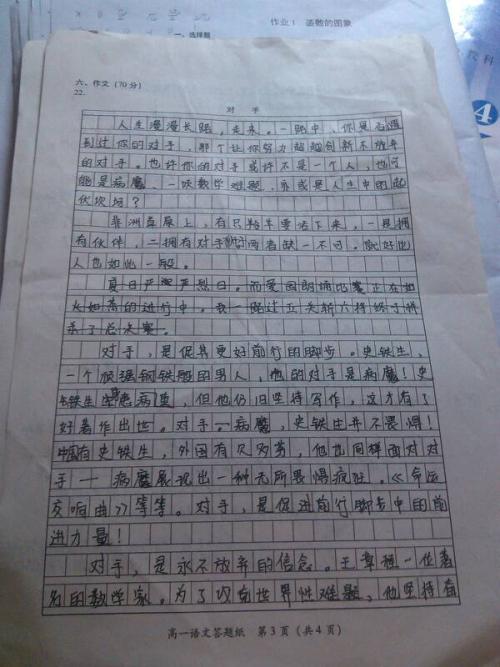 作业1 函数的图象
一、选择题
4
六、作文(70分)
22.
对手
人生漫漫长路,走来。一路中,你是否遇
到过你的对手,那个让你努力超越创新不放弃
的对手。也许你的对手或许不是一个人,也可
能是病魔、一块数学难题,亦或是人生中的起
伏坎坷?
非洲草原上,有只羚羊要活下来,一是拥
有伙伴,二拥有对手 两者缺一不可。就好比
人也如此一般。
夏日严严烈日。而爱国朗诵比赛正在如
火如荼的进行中。我一路过五关斩六将终于拼
杀了总决赛。
对手,是促其更好前行的脚步。史铁生,
一个顽强钢铁般的男人,他的对手是病魔!史
铁生 患病重,但他仍旧坚持写作,这才有了
好著作出世。对手,病魔,史铁生并不畏惧!
中国有史铁生,外国有贝多芬,他也同样面对对
手一病魔展现出一种无所畏惧疯狂。《命运
交响曲》等等。对手,是促进前行脚步中的前
进力量!
对手,是永不放弃的信念。王章雄一位著
名的数学家。为了攻克世界性难题,他坚持有
高一语文答题纸 第3页(共4页)